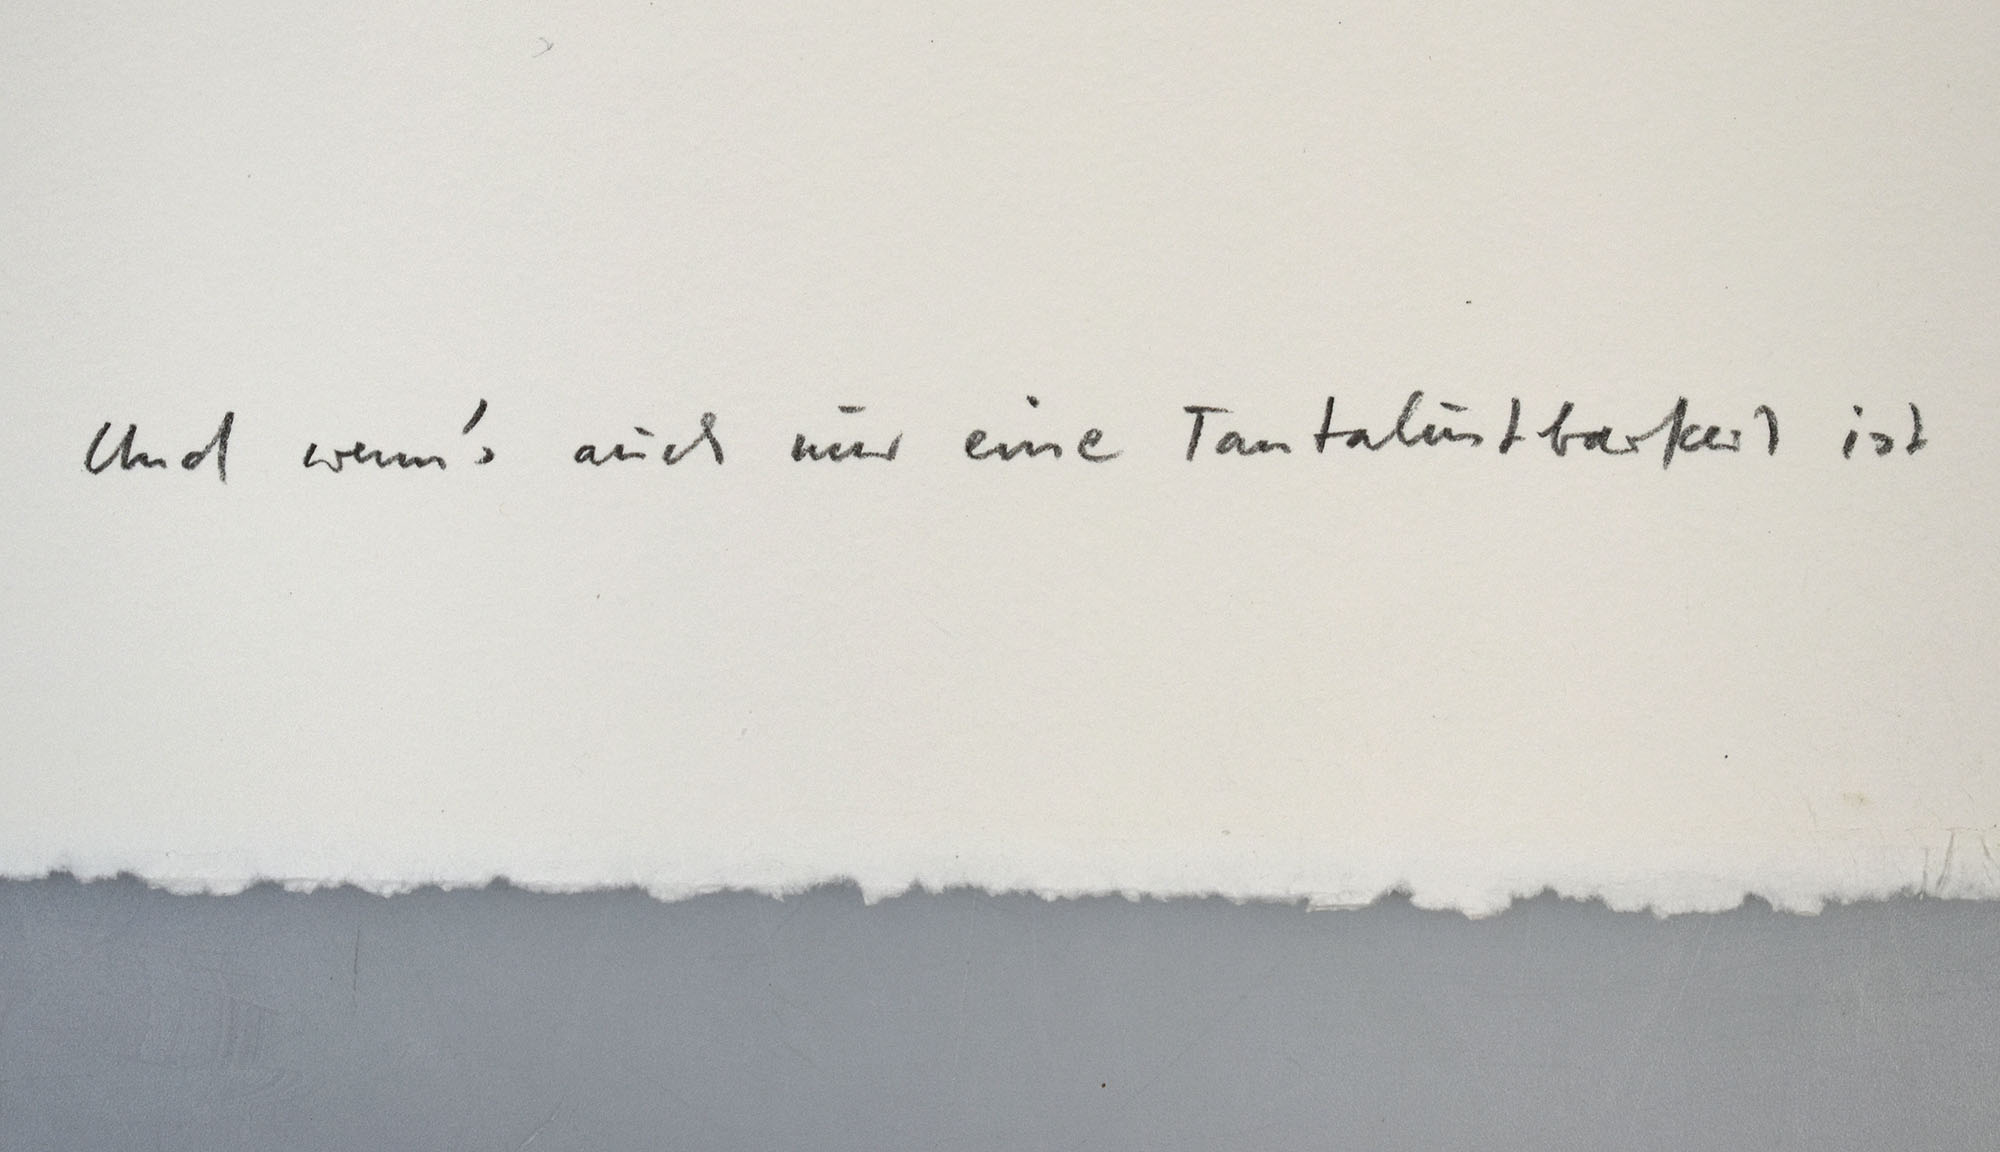 Und wenn's auch nur eine Tantalustbarkeit ist